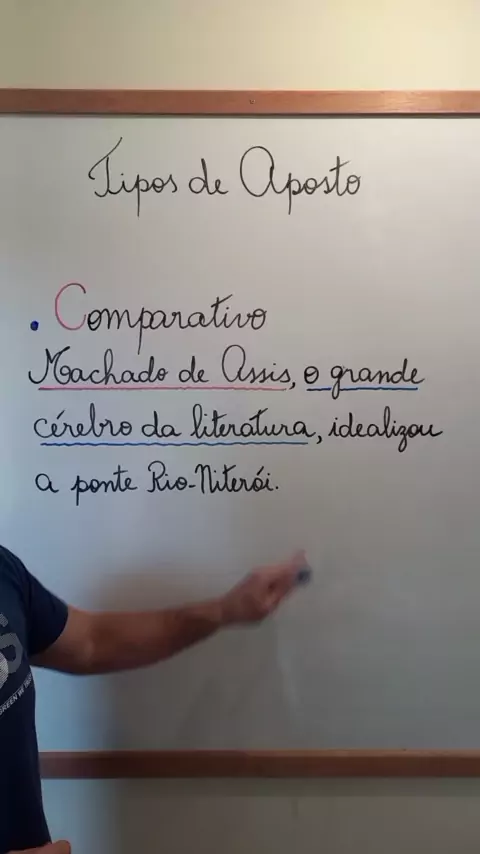 Tipos de Aposto
. Comparativo
Machado de Assis, o grande
cérebro da literatura, idealizou
a ponte Rio-Niterói.